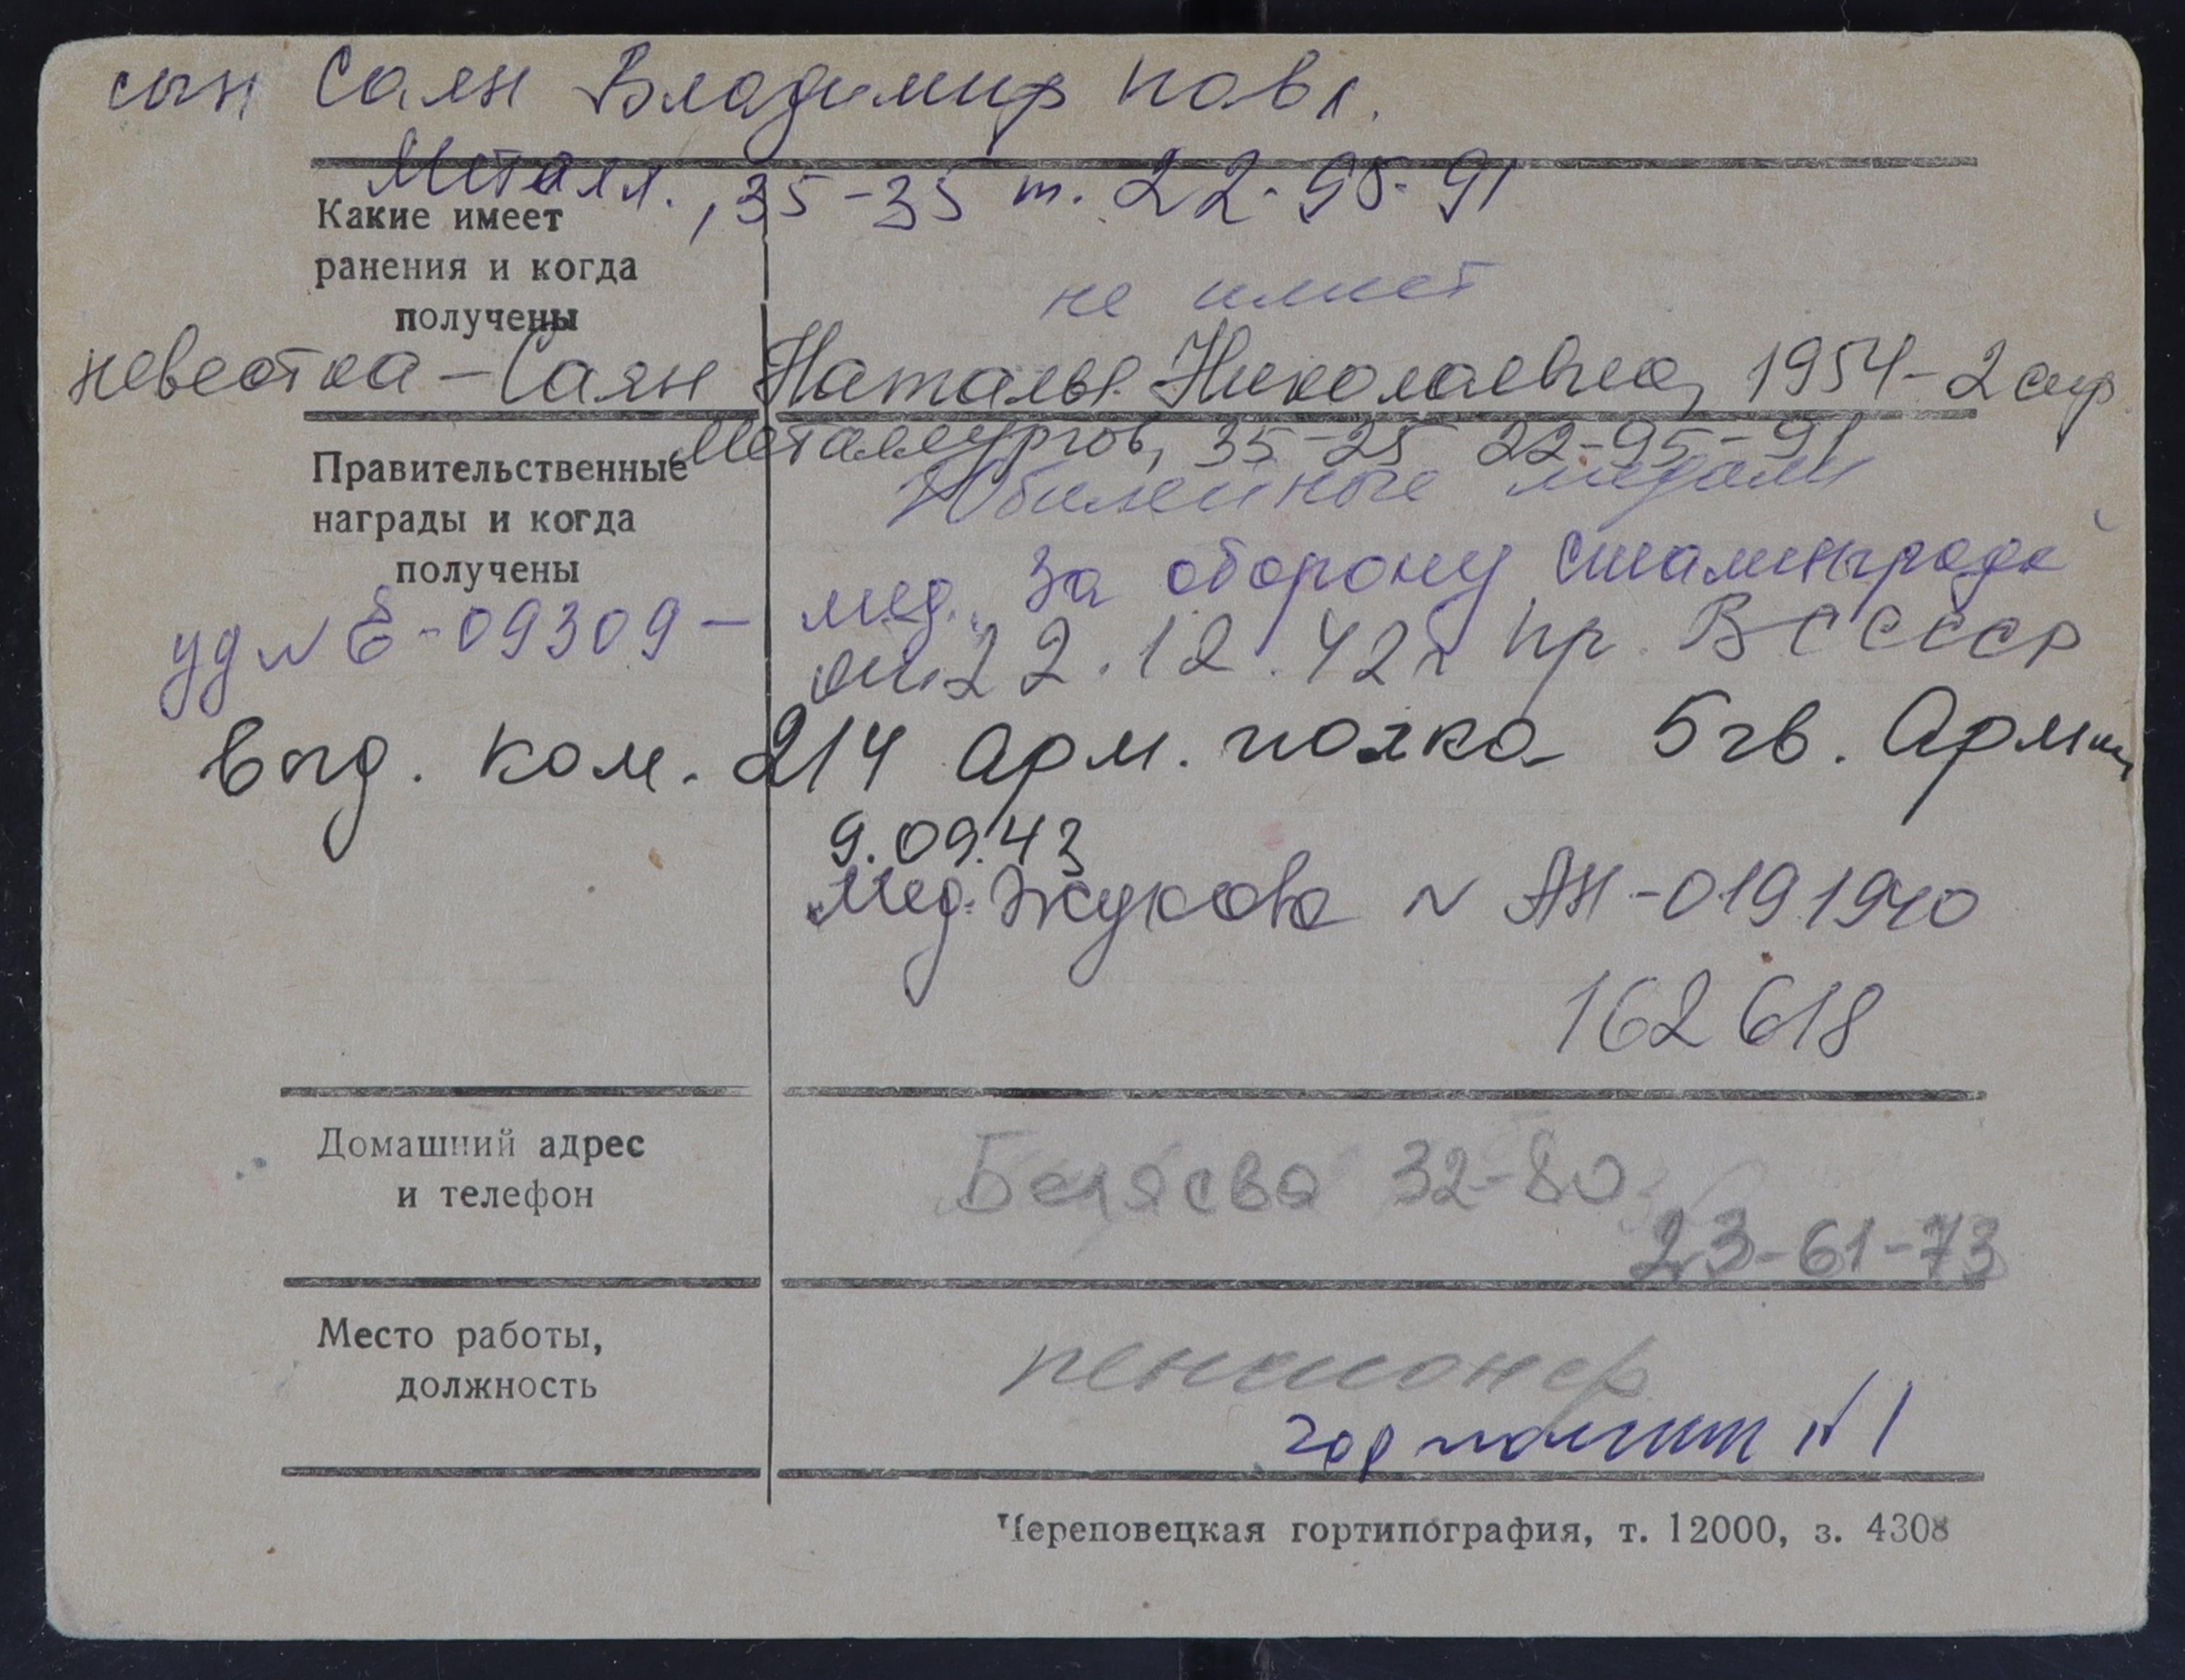 сын Саян Владимир Павл.
Металл., 35-35 т. 22-95-91
Какие имеет
ранения и когда
получены
не имеет
невестка - Саян Наталья Николаевна, 1954 -
Металлургов, 35-25 22-95-91
Правительственные
награды и когда
получены
Юбилейные медали
уд N Е-09309 - мед. За оборону Сталинграда
от 22.12.42г пр. ВС СССР
выд. ком. 214 арм. полка 5 гв. Армии
9.09.43
Мед. Жукова N АН-0191940
162618
Домашний адрес
и телефон
Беляева 32-80
23-61-73
Место работы,
должность
пенсионер
N 1
Череповецкая гортипография, т. 12000, з. 4308